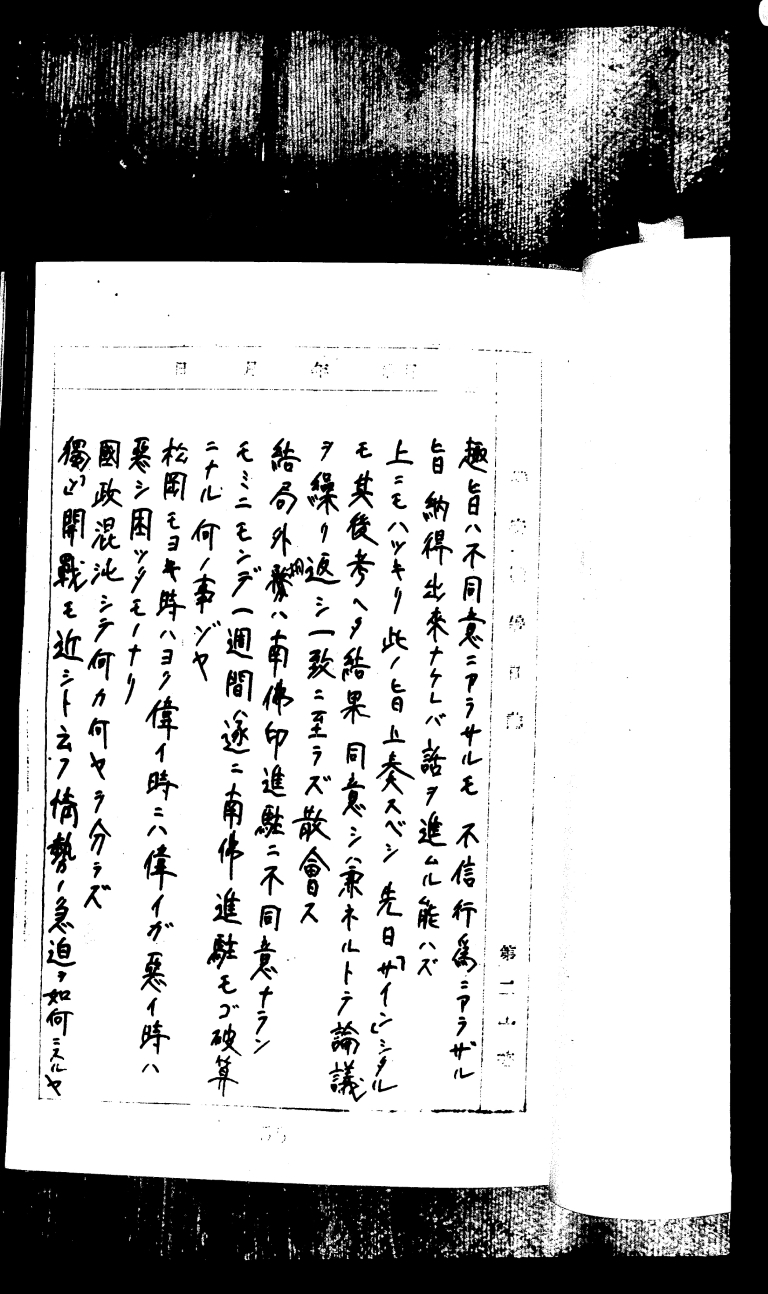 年 月 日
趣旨ハ不同意ニアラザルモ 不信行爲ニアラザル
旨納得出来ナケレバ話ヲ進ムル能ハズ
上ニモハツキリ此ノ旨上奏スベシ 先日「サイン」シタル
モ其後考ヘタ結果同意シ兼ネルトテ論議
ヲ繰リ返シ一致ニ至ラズ散會ス
結局外相ハ南佛印進駐ニ不同意ナラン
モミニモンデ一週間遂ニ南佛進駐モゴ破算
ニナル何ノ事ゾヤ
松岡モヨキ時ハヨク偉イ時ニハ偉イガ惡イ時ハ
惡シ困ツタモノナリ
國政混沌シテ何カ何ヤラ分ラズ
獨「ソ」開戰モ近シト云フ情勢ノ急迫ヲ如何ニスルヤ
第二